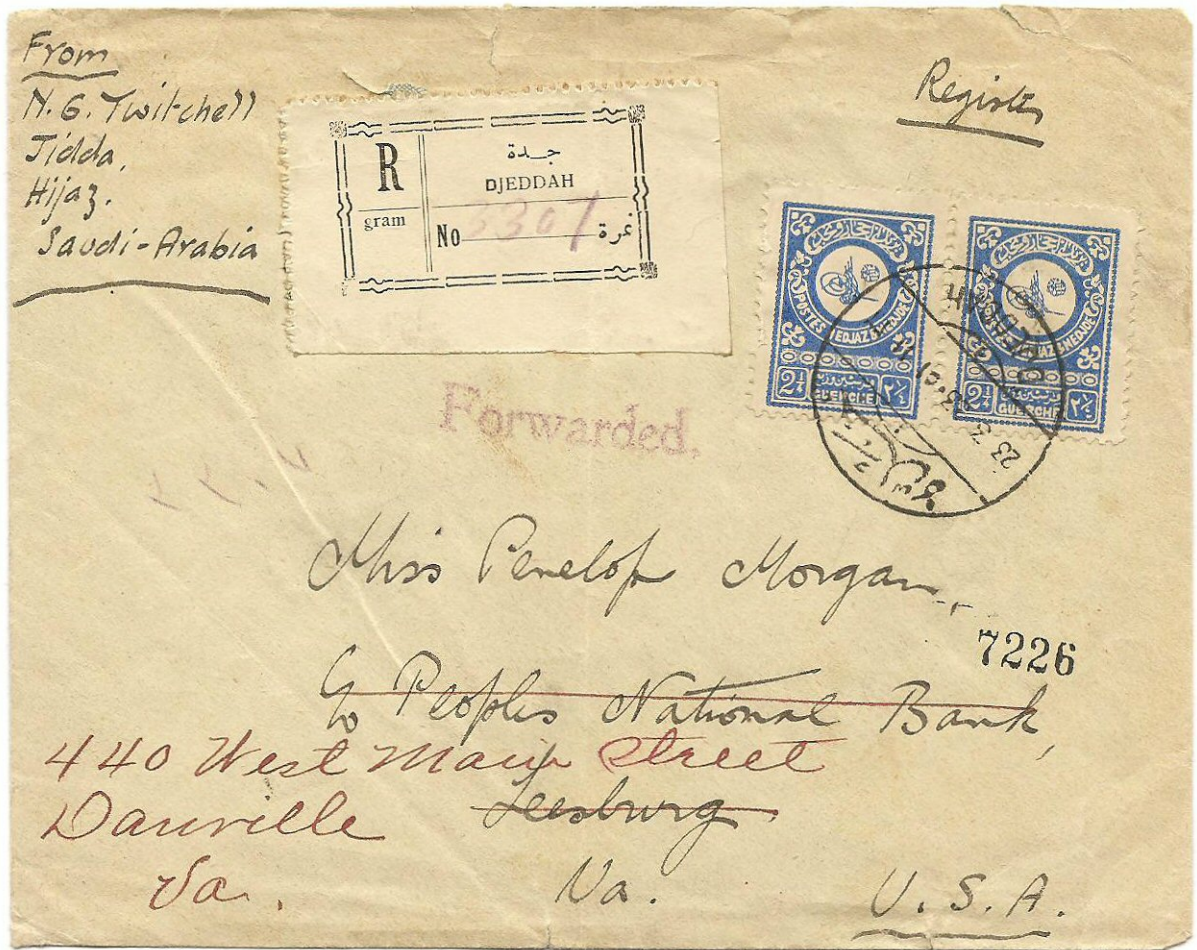 From
N. G. Twitchell
Jidda,
Hijaz.
Saudi-Arabia
Register
R
gram
جدة
DJEDDAH
No 3301 نمرة
POSTES HEDJAZ & NEDJDE
2¼ ٢¼
GUERCHE
POSTES HEDJAZ & NEDJDE
2¼ ٢¼
GUERCHE
DJEDDAH
Forwarded.
Miss Penelope Morgan,
7226
c/o Peoples National Bank,
440 West Main Street
Danville Leesburg
Va. Va. U.S.A.